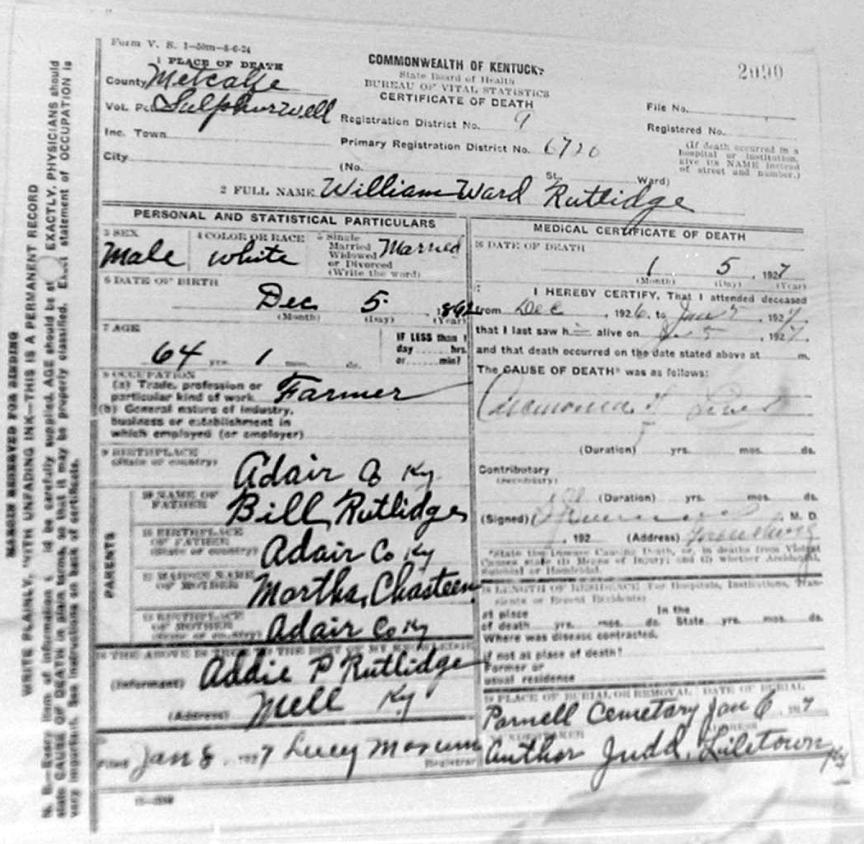 Form V. S. 1-50m-8-6-24
1 PLACE OF DEATH
County Metcalfe
Vot. Pct Sulphurwell
Inc. Town
City
COMMONWEALTH OF KENTUCKY
State Board of Health
BUREAU OF VITAL STATISTICS
CERTIFICATE OF DEATH
Registration District No. 9
Primary Registration District No. 6720
(No. St. Ward)
2090
File No.
Registered No.
(If death occurred in a
hospital or institution,
give its NAME instead
of street and number.)
2 FULL NAME William Ward Rutlidge
PERSONAL AND STATISTICAL PARTICULARS
3 SEX
Male
4 COLOR OR RACE
white
5 Single
Married
Widowed
or Divorced
(Write the word)
Married
6 DATE OF BIRTH
Dec 5 1862
(Month) (Day) (Year)
7 AGE
64 yrs. 1 mos. ds.
IF LESS than 1
day hrs.
or min?
8 OCCUPATION
(a) Trade, profession or
particular kind of work Farmer
(b) General nature of industry,
business or establishment in
which employed (or employer)
9 BIRTHPLACE
(State or country)
Adair Co Ky
PARENTS
10 NAME OF
FATHER
Bill Rutlidge
11 BIRTHPLACE
OF FATHER
(State or country)
Adair Co Ky
12 MAIDEN NAME
OF MOTHER
Martha, Chasteen
13 BIRTHPLACE
OF MOTHER
(State or country)
Adair Co Ky
14 THE ABOVE IS TRUE TO THE BEST OF MY KNOWLEDGE
(Informant) Addie P Rutlidge
(Address) Mell Ky
Filed Jan 8, 1927 Lucy
Registrar
MEDICAL CERTIFICATE OF DEATH
16 DATE OF DEATH
1 5, 1927
(Month) (Day) (Year)
I HEREBY CERTIFY, That I attended deceased
from Dec, 1926, to Jan 5, 1927
that I last saw h alive on 5, 1927
and that death occurred on the date stated above at m.
The CAUSE OF DEATH* was as follows:
(Duration) yrs. mos. ds.
Contributory
(Secondary)
(Duration) yrs. mos. ds.
(Signed) M. D.
, 192 (Address)
*State the Disease Causing Death, or, in deaths from Violent
Causes state (1) Means of Injury; and (2) whether Accidental,
Suicidal or Homicidal.
18 LENGTH OF RESIDENCE (For Hospitals, Institutions, Tran-
sients or Recent Residents)
At place In the
of death yrs. mos. ds. State yrs. mos. ds.
Where was disease contracted,
if not at place of death?
Former or
usual residence
19 PLACE OF BURIAL OR REMOVAL DATE OF BURIAL
Parnell Cemetary Jan 6 1927
UNDERTAKER ADDRESS
Author Judd, Liletown Ky
MARGIN RESERVED FOR BINDING
WRITE PLAINLY, WITH UNFADING INK—THIS IS A PERMANENT RECORD
N. B.—Every item of information should be carefully supplied. AGE should be stated EXACTLY. PHYSICIANS should
state CAUSE OF DEATH in plain terms, so that it may be properly classified. Exact statement of OCCUPATION is
very important. See instructions on back of certificate.